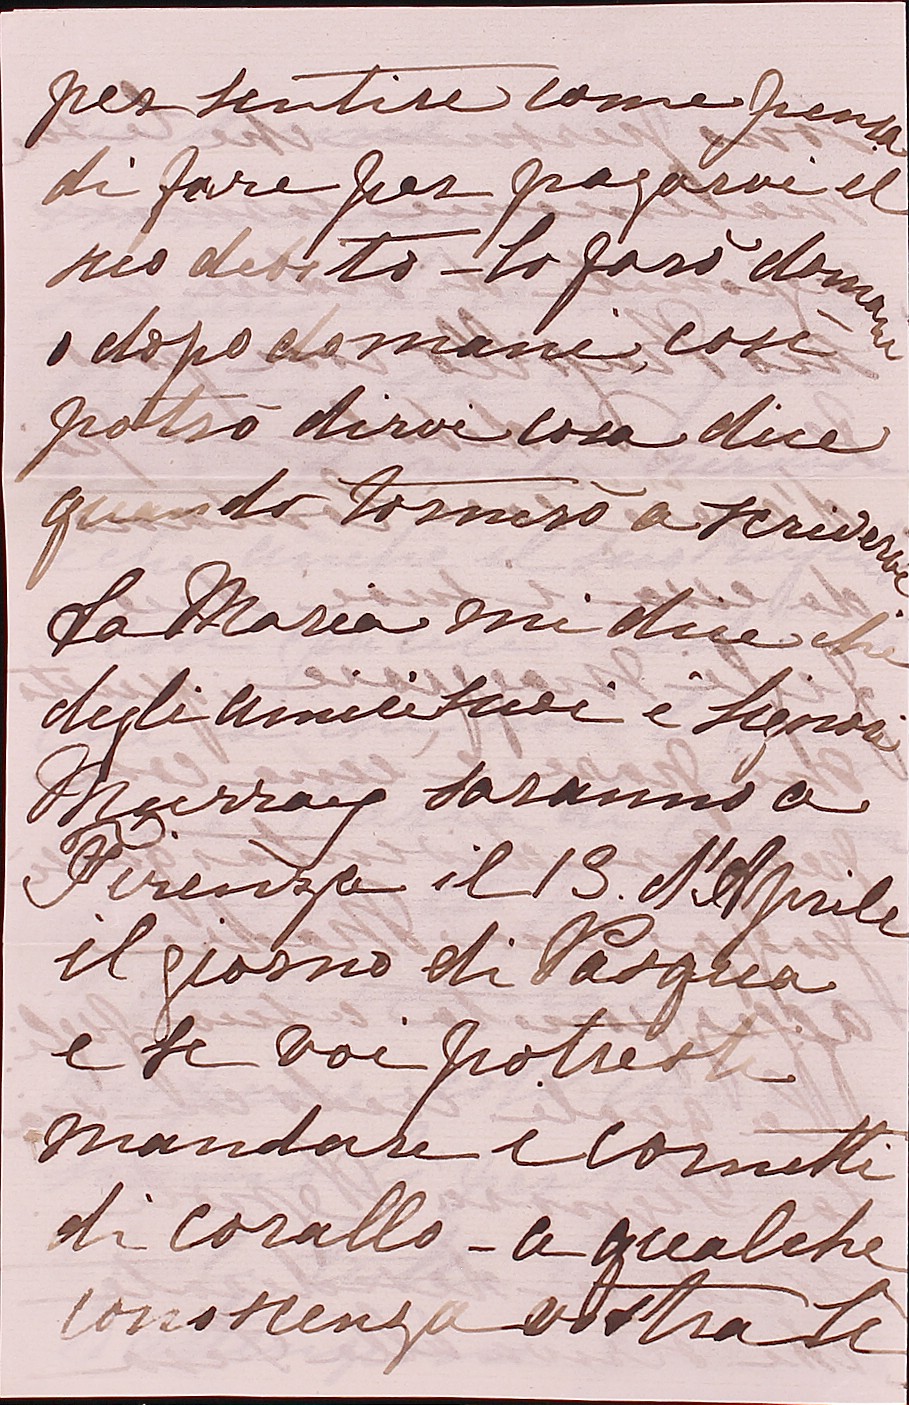 per sentire come pensa
di fare per pagarvi il
suo debito – Lo farò domani
o dopo domani, così
potrò dirvi cosa dice
quando tornerò a scrivervi
La Maria mi dice che
degli amici suoi i Signori
Murray saranno a
Firenze il 13. d'Aprile
il giorno di Pasqua
e se voi potresti
mandare i cornetti
di corallo – a qualche
conoscenza vostra lì